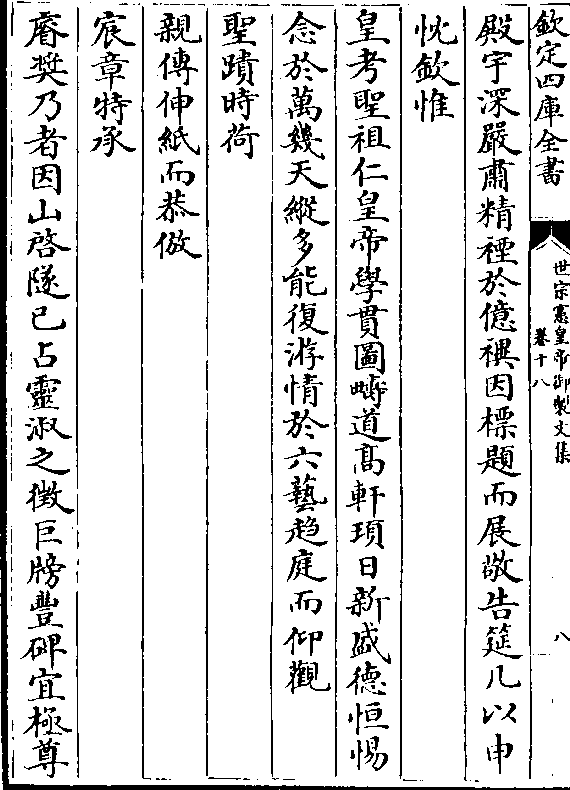 欽定四庫全書
世宗憲皇帝御製文集
卷十八
八
殿宇深嚴肅精禋於億禩因標題而展敬告筵几以申
忱欽惟
皇考聖祖仁皇帝學貫圖疇道髙軒頊日新盛德恒惕
念於萬幾天縱多能復游情於六藝趋庭而仰觀
聖蹟時荷
親傳伸紙而恭倣
宸章特承
睿奬乃者因山啓隧已占靈淑之徴巨牓豐碑宜極尊